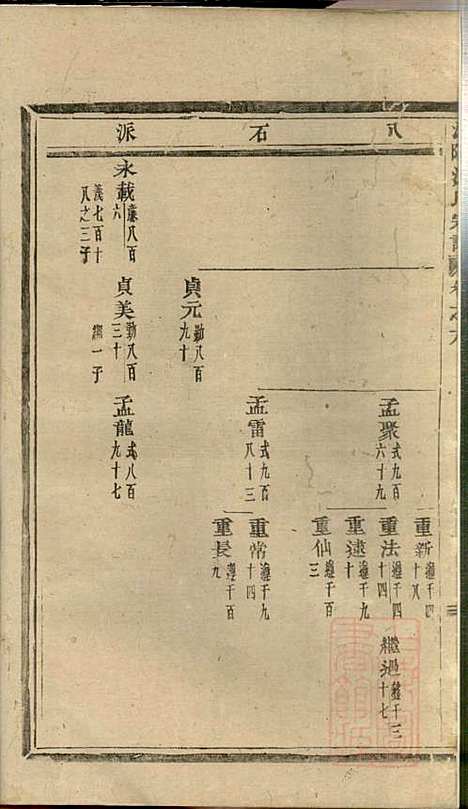 八石派
重新
遵千四
十八
孟聚
式九百
六十九
重法
遵千四
十四
繼迥
十七
重達
遵千九
十
重仙
遵千百
三
孟雷
式九百
八十三
重常
遵千九
十四
重長
遵千百
九
貞元
勤八百
九十
永載
廉八百
六
義七百十
八之三子
貞美
勤八百
三十
繼一子
孟龍
式八百
九十七